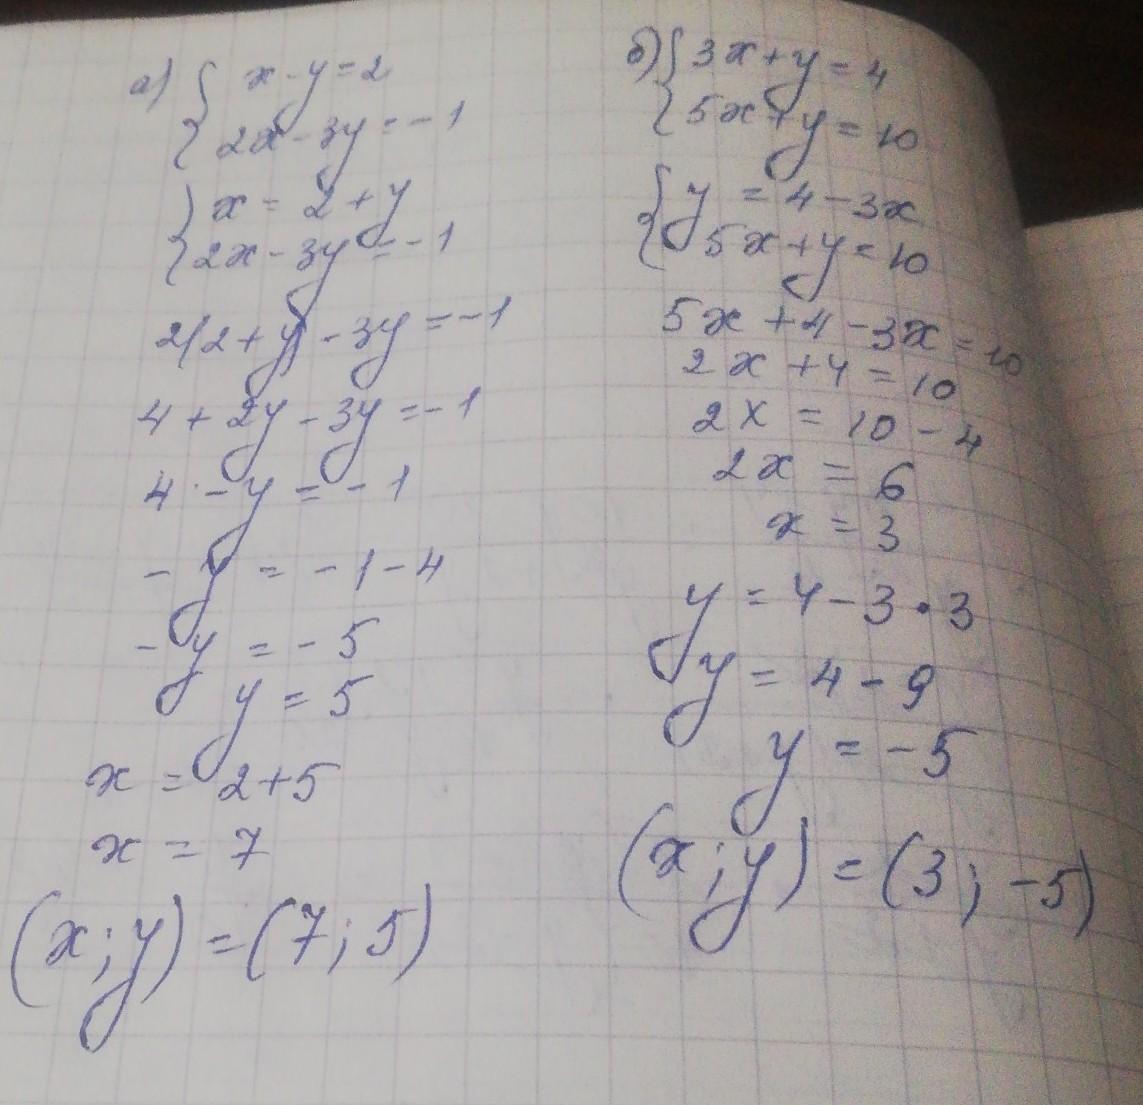 а) { x - y = 2
{ 2x - 3y = -1
{ x = 2 + y
{ 2x - 3y = -1
2(2 + y) - 3y = -1
4 + 2y - 3y = -1
4 - y = -1
- y = -1 - 4
- y = -5
y = 5
x = 2 + 5
x = 7
(x; y) = (7; 5)
б) { 3x + y = 4
{ 5x + y = 10
{ y = 4 - 3x
{ 5x + y = 10
5x + 4 - 3x = 10
2x + 4 = 10
2x = 10 - 4
2x = 6
x = 3
y = 4 - 3 · 3
y = 4 - 9
y = -5
(x; y) = (3; -5)